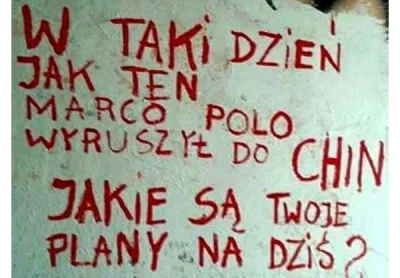 W TAKI DZIEŃ
JAK TEN
MARCO POLO
WYRUSZYŁ DO CHIN
JAKIE SĄ TWOJE
PLANY NA DZIŚ?